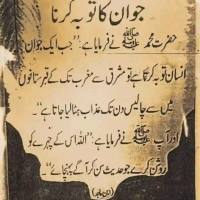 جوان کا توبہ کرنا
حضرت محمد ﷺ نے فرمایا ہے: "جب ایک جوان
انسان توبہ کرتا ہے تو مشرق سے مغرب تک کے قبرستانوں
میں سے چالیس دن تک عذاب ہٹا لیا جاتا ہے"۔
اور آپ ﷺ نے فرمایا ہے: "اللہ اس کے چہرے کو
روشن کرے جو حدیث سن کر آگے پہنچائے"۔